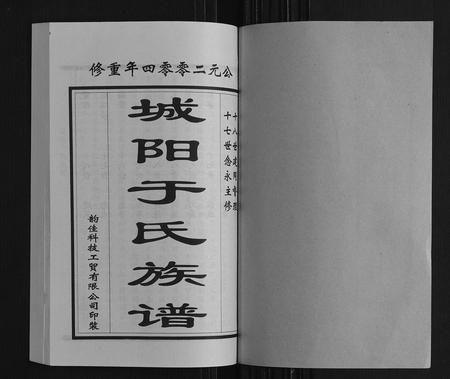 公元二零零四年重修
十八世
十七世念永主修
城阳于氏族谱
韵佳科技工贸有限公司印装